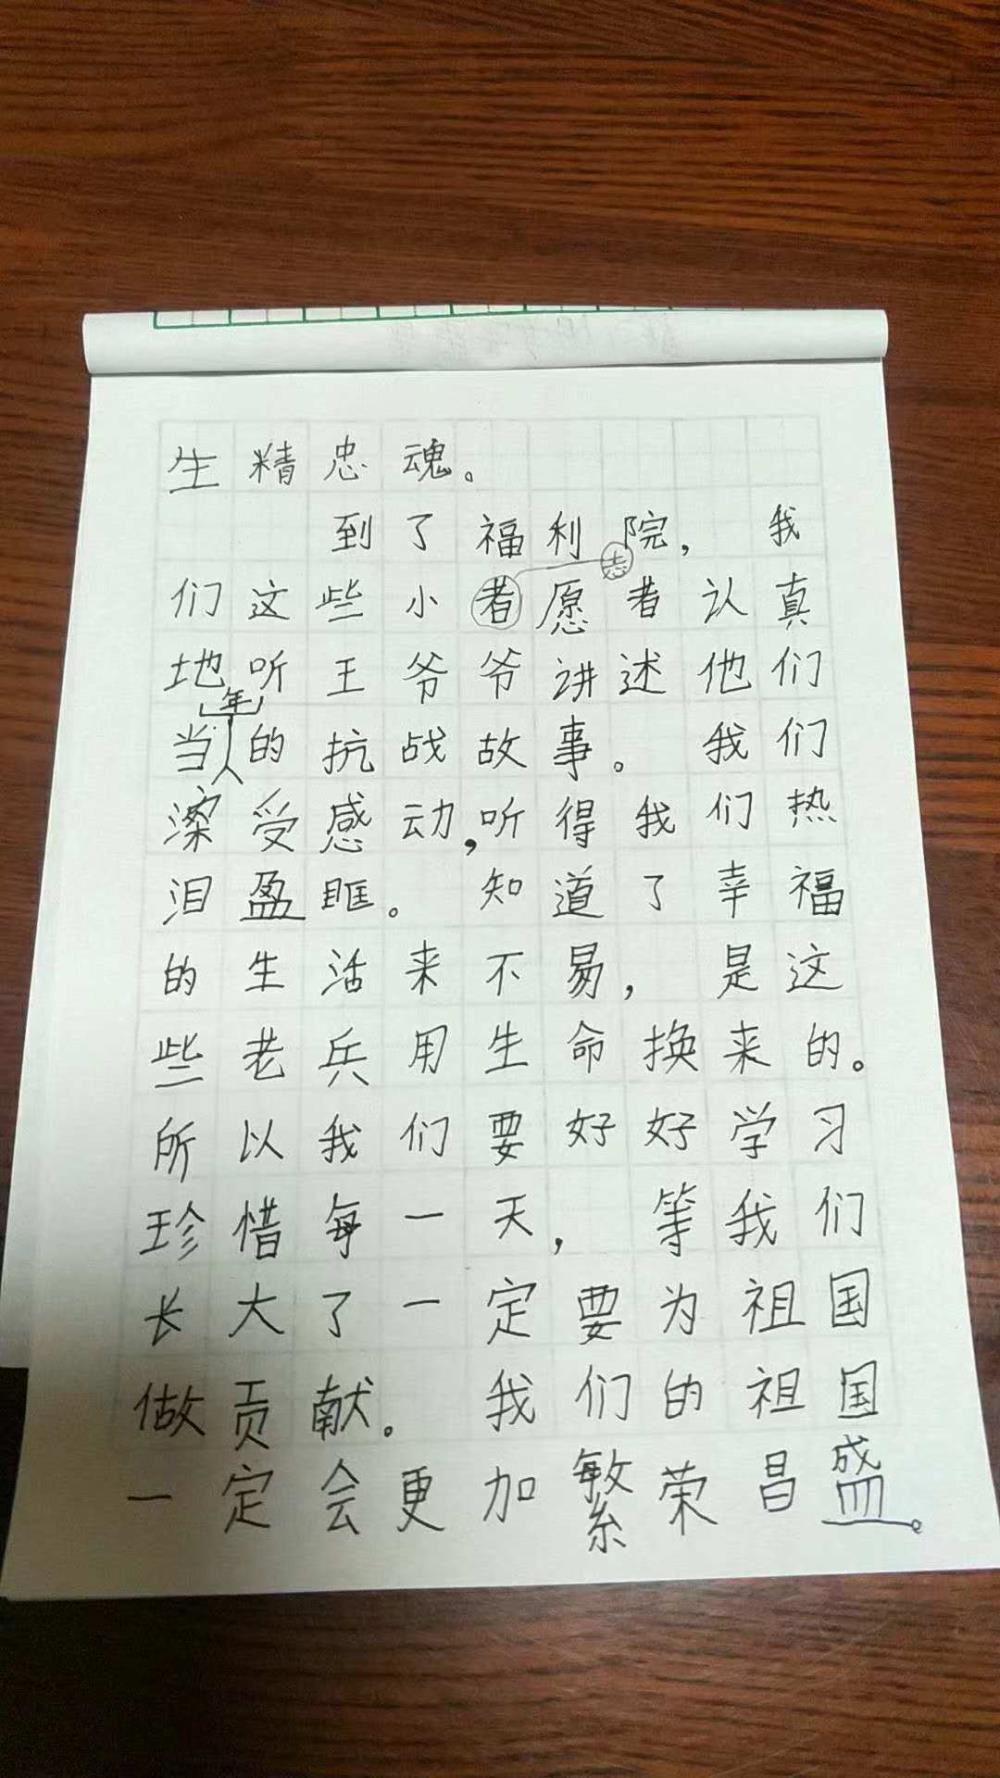 生精忠魂。
到了福利院，我
们这些小志愿者认真
地听王爷爷讲述他们
当年的抗战故事。我们
深受感动，听得我们热
泪盈眶。知道了幸福
的生活来不易，是这
些老兵用生命换来的。
所以我们要好好学习
珍惜每一天，等我们
长大了一定要为祖国
做贡献。我们的祖国
一定会更加繁荣昌盛。